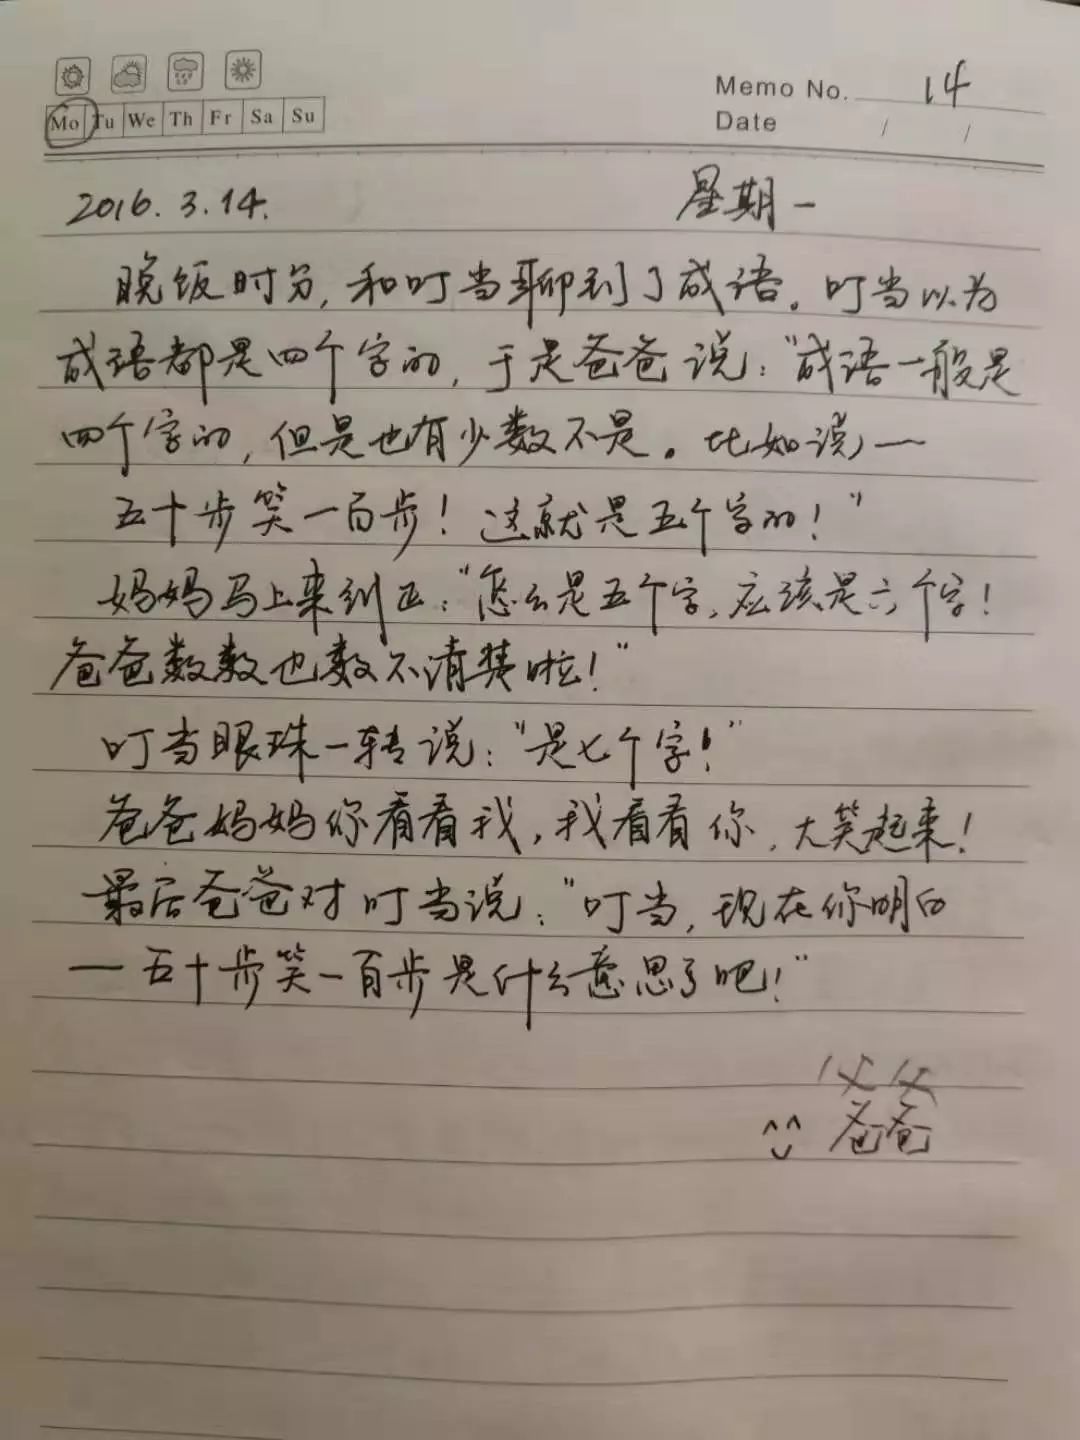 Memo No. 14
Mo Tu We Th Fr Sa Su
Date / /
2016.3.14. 星期一
晚饭时分,和叮当聊到了成语。叮当以为
成语都是四个字的,于是爸爸说:"成语一般是
四个字的,但是也有少数不是。比如说——
五十步笑一百步!这就是五个字的!"
妈妈马上来纠正:"怎么是五个字,应该是六个字!
爸爸数数也数不清楚啦!"
叮当眼珠一转说:"是七个字!"
爸爸妈妈你看看我,我看看你,大笑起来!
最后爸爸对叮当说:"叮当,现在你明白
—五十步笑一百步是什么意思了吧!"
^^ 爸爸